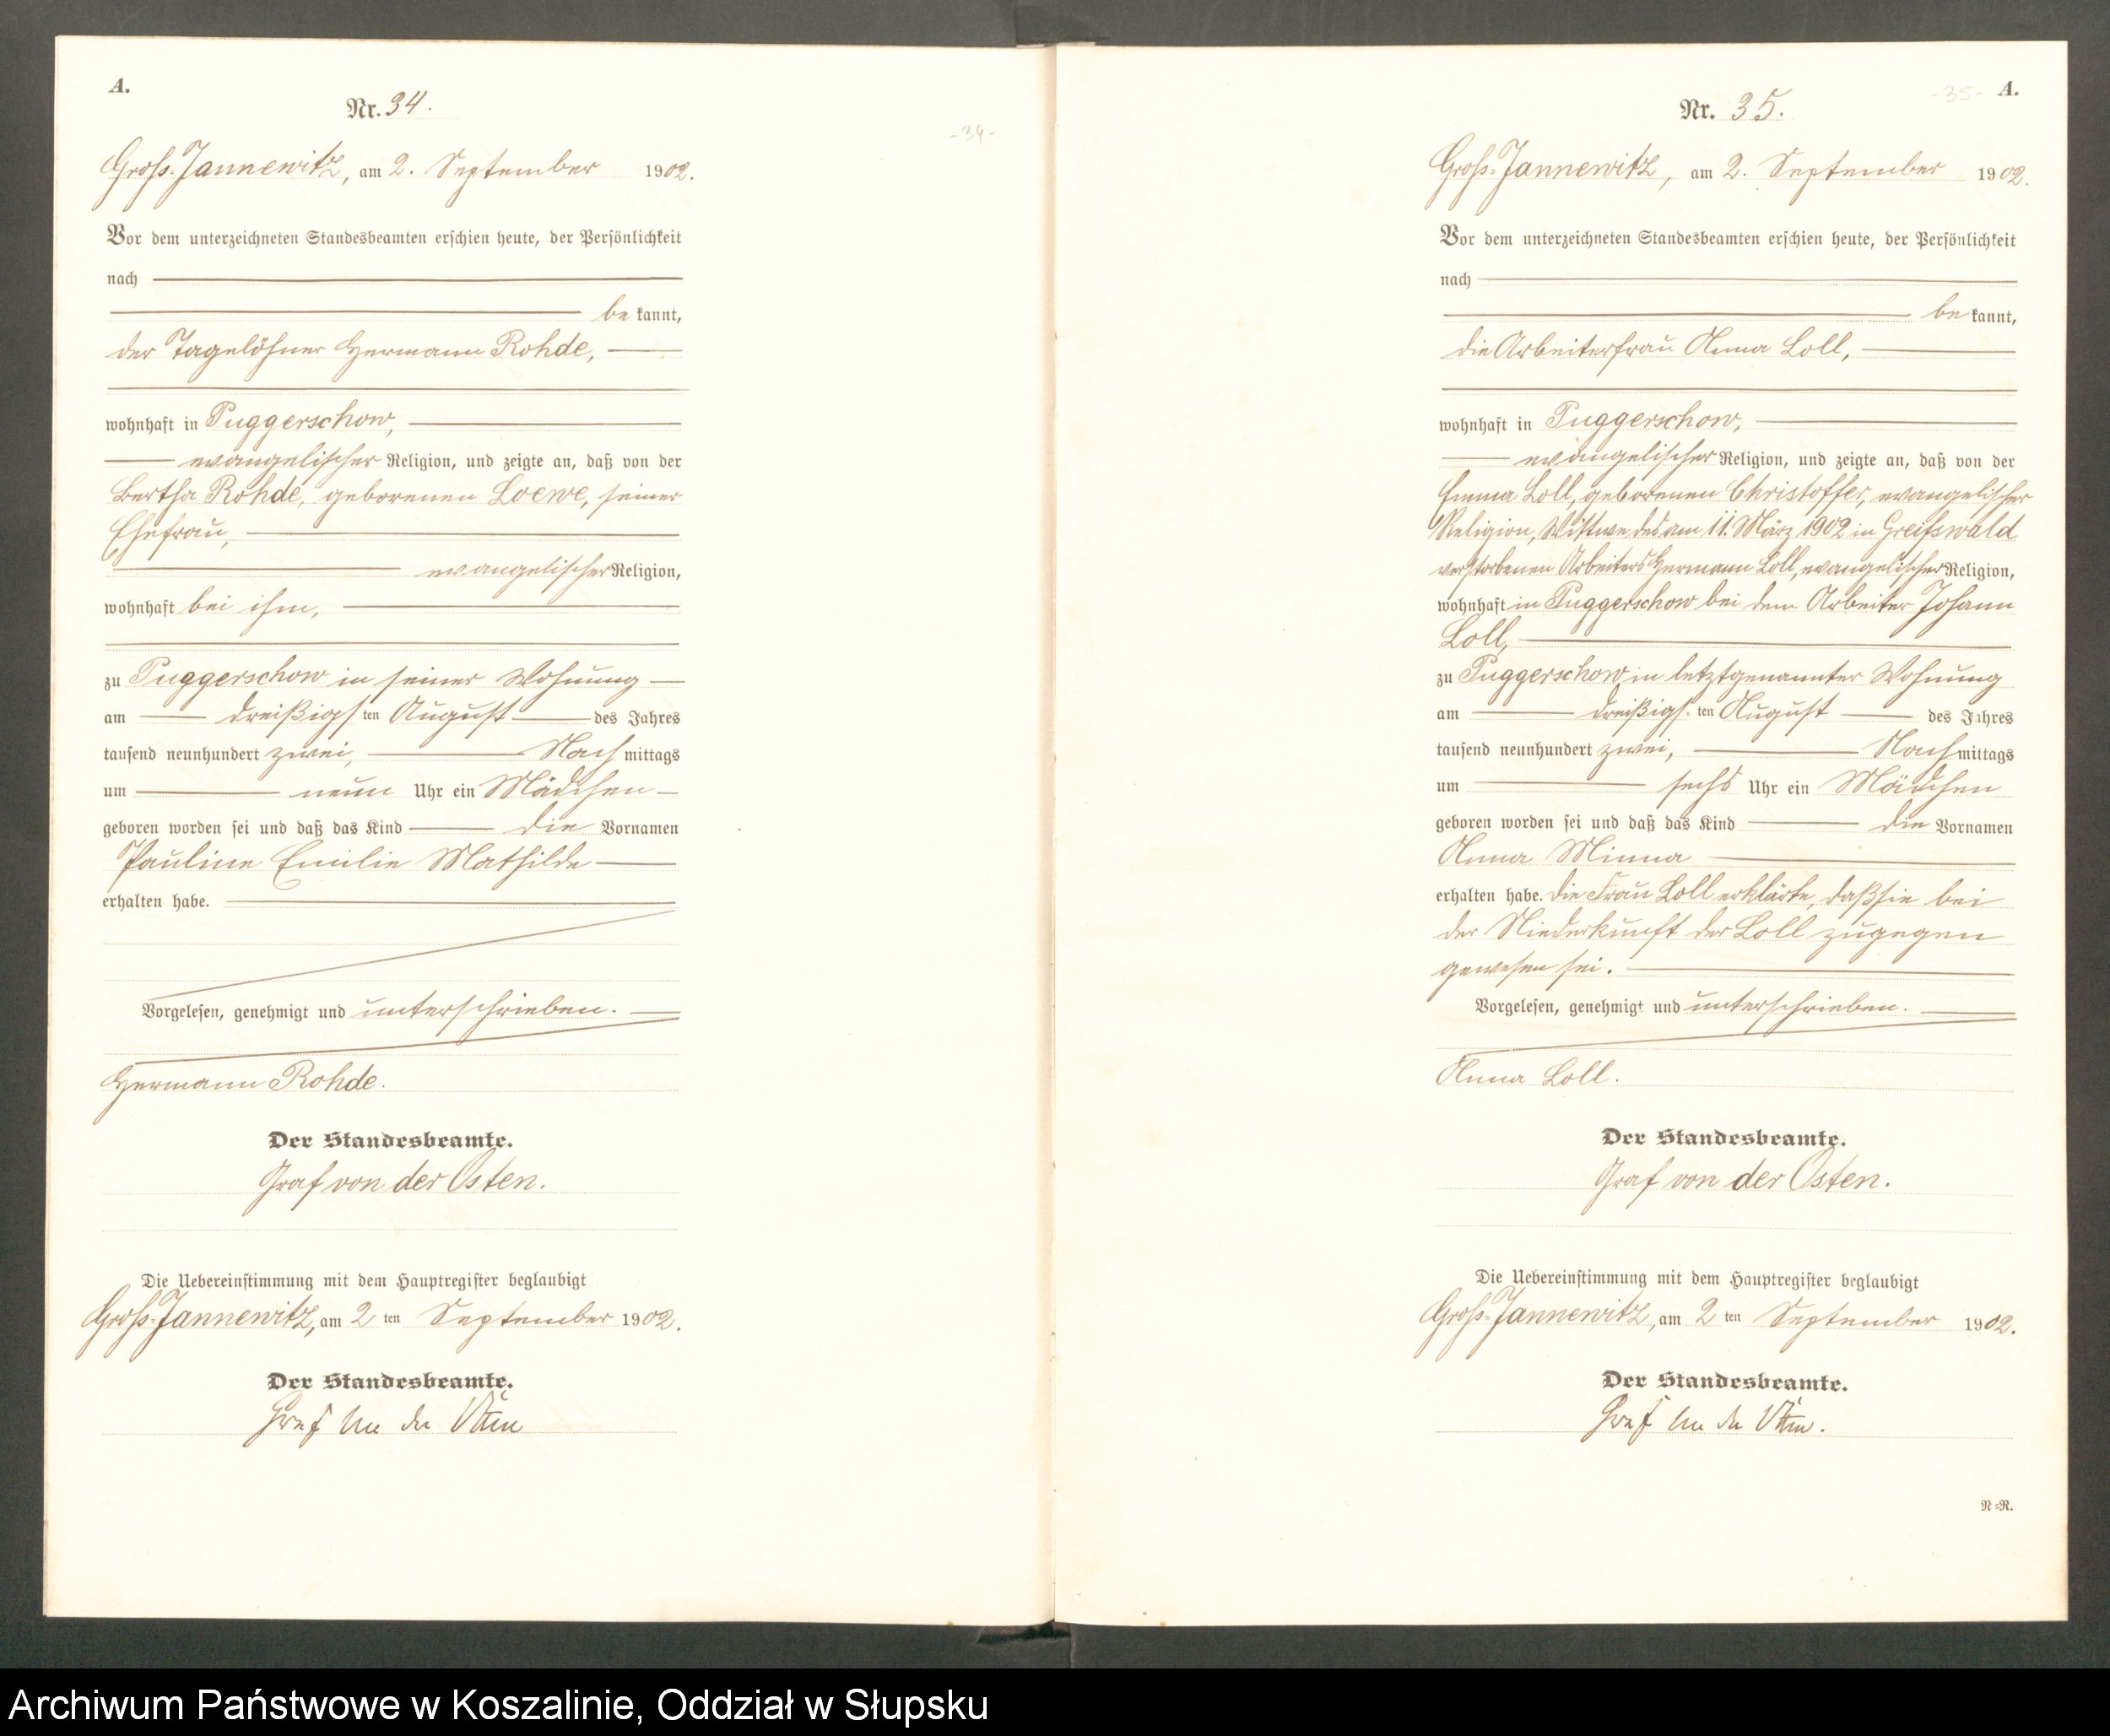 A.
Nr. 34.
-34-
Groß-Jannewitz, am 2. September 1902.
Vor dem unterzeichneten Standesbeamten erschien heute, der Persönlichkeit
nach
be kannt,
der Tagelöhner Hermann Rohde,
wohnhaft in Puggerschow,
evangelischer Religion, und zeigte an, daß von der
Bertha Rohde, geborenen Loewe, seiner
Ehefrau,
evangelischer Religion,
wohnhaft bei ihm,
zu Puggerschow in seiner Wohnung
am dreißigsten August des Jahres
tausend neunhundert zwei, Nachmittags
um neun Uhr ein Mädchen
geboren worden sei und daß das Kind die Vornamen
Pauline Emilie Mathilde
erhalten habe.
Vorgelesen, genehmigt und unterschrieben.
Hermann Rohde.
Der Standesbeamte.
Graf von der Osten.
Die Uebereinstimmung mit dem Hauptregister beglaubigt
Groß-Jannewitz, am 2 ten September 1902.
Der Standesbeamte.
Graf von der Osten
-35- A.
Nr. 35.
Groß-Jannewitz, am 2. September 1902.
Vor dem unterzeichneten Standesbeamten erschien heute, der Persönlichkeit
nach
be kannt,
die Arbeiterfrau Anna Loll,
wohnhaft in Puggerschow,
evangelischer Religion, und zeigte an, daß von der
Emma Loll, geborenen Christoffer, evangelischer
Religion, Wittwe des am 11. März 1902 in Greifswald
verstorbenen Arbeiters Hermann Loll, evangelischer Religion,
wohnhaft in Puggerschow bei dem Arbeiter Johann
Loll,
zu Puggerschow in letztgenannter Wohnung
am dreißigsten August des Jahres
tausend neunhundert zwei, Nachmittags
um sechs Uhr ein Mädchen
geboren worden sei und daß das Kind die Vornamen
Anna Minna
erhalten habe. Die Frau Loll erklärte, daß sie bei
der Niederkunft der Loll zugegen
gewesen sei.
Vorgelesen, genehmigt und unterschrieben.
Anna Loll.
Der Standesbeamte.
Graf von der Osten.
Die Uebereinstimmung mit dem Hauptregister beglaubigt
Groß-Jannewitz, am 2 ten September 1902.
Der Standesbeamte.
Graf von der Osten.
N=R.
Archiwum Państwowe w Koszalinie, Oddział w Słupsku